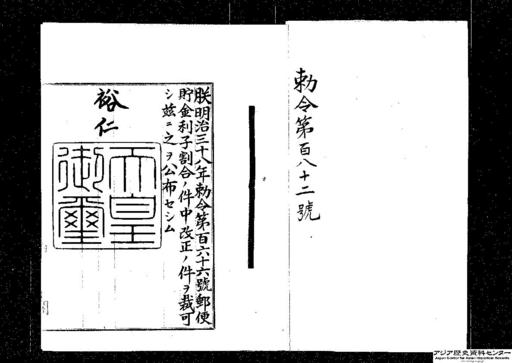 勅令第百八十二號
朕明治三十八年勅令第百六十六號郵便
貯金利子割合ノ件中改正ノ件ヲ裁可
シ茲ニ之ヲ公布セシム
裕仁
天皇
御璽
アジア歴史資料センター
Japan Center for Asian Historical Records